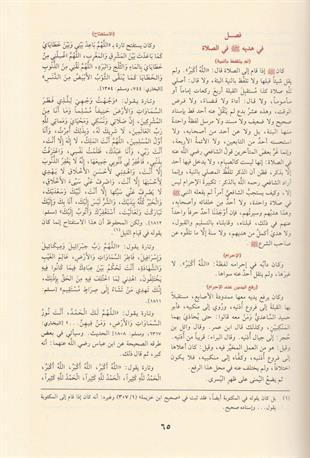 فصل
في هديه ﷺ في الصلاة
(لم يتلفظ بالنية)
كان ﷺ إذا قام إلى الصلاة قال: «الله أكبر». ولم
يقل شيئاً قبلها ولا تلفظ بالنية البتة، ولا قال: أصلي
لله صلاة كذا مستقبل القبلة أربع ركعات إماماً أو
مأموماً، ولا قال: أداء ولا قضاء، ولا فرض
الوقت، وهذه عشر بدع لم ينقل عنه أحد قط بإسناد
صحيح ولا ضعيف ولا مسند ولا مرسل لفظة واحدة
منها البتة، بل ولا عن أحد من أصحابه، ولا
استحسنه أحد من التابعين، ولا الأئمة الأربعة،
وإنما غر بعض المتأخرين قول الشافعي رضي الله عنه
في الصلاة: إنها ليست كالصيام، ولا يدخل فيها أحد
إلا بذكر، فظن أن الذكر تلفظ المصلي بالنية، وإنما
أراد الشافعي رحمه الله بالذكر: تكبيرة الإحرام ليس
إلا، وكيف يستحب الشافعي أمراً لم يفعله النبي ﷺ
في صلاة واحدة، ولا أحد من خلفائه وأصحابه،
وهذا هديهم وسيرتهم، فإن أوجدنا أحد حرفاً واحداً
عنهم في ذلك، قبلناه، وقابلناه بالتسليم والقبول،
ولا هدي أكمل من هديهم، ولا سنة إلا ما تلقوه عن
صاحب الشرع ﷺ
(الإحرام)
وكان دأبه في إحرامه لفظة: «الله أكبر». لا
غيرها، ولم ينقل أحد عنه سواها.
(رفع اليدين عند الإحرام)
وكان يرفع يديه معها ممدودة الأصابع، مستقبلاً
بها القبلة إلى فروع أذنيه، وروي إلى منكبيه، فأبو
حميد الساعدي ومن معه قالوا: حتى يحاذي بهما
المنكبين، وكذلك قال ابن عمر. وقال وائل بن
حجر: إلى حيال أذنيه. وقال البراء: قريباً من أذنيه.
وقيل: هو من العمل المخير فيه، وقيل: كان أعلاها
إلى فروع أذنيه، وكفاه إلى منكبيه، فلا يكون
اختلافاً، ولم يختلف عنه في محل هذا الرفع.
ثم يضع اليمنى على ظهر اليسرى.
(الاستفتاح)
وكان يستفتح تارة بـ «اللهم باعد بيني وبين خطاياي
كما باعدت بين المشرق والمغرب، اللهم اغسلني من
خطاياي بالماء والثلج والبرد، اللهم نقني من الذنوب
والخطايا كما ينقى الثوب الأبيض من الدنس»
وتارة يقول: «وجهت وجهي للذي فطر
السماوات والأرض حنيفاً مسلماً وما أنا من
المشركين، إن صلاتي ونسكي ومحياي ومماتي لله
رب العالمين، لا شريك له، وبذلك أمرت، وأنا
أول المسلمين، اللهم أنت الملك، لا إله إلا أنت،
أنت ربي، وأنا عبدك، ظلمت نفسي، واعترفت
بذنبي، فاغفر لي ذنوبي جميعها، إنه لا يغفر الذنوب
إلا أنت، واهدني لأحسن الأخلاق لا يهدي
لأحسنها إلا أنت، واصرف عني سيء الأخلاق،
لا يصرف عني سيئها إلا أنت، لبيك وسعديك،
والخير كله بيديك، والشر ليس إليك، أنا بك وإليك
تباركت وتعاليت، أستغفرك وأتوب إليك»
ولكن المحفوظ أن هذا الاستفتاح إنما كان
يقوله في قيام الليل
وتارة يقول: «اللهم رب جبرائيل وميكائيل
وإسرافيل، فاطر السماوات والأرض، عالم الغيب
والشهادة، أنت تحكم بين عبادك فيما كانوا فيه
يختلفون، اهدني لما اختلف فيه من الحق بإذنك،
إنك تهدي من تشاء إلى صراط مستقيم»
وتارة يقول: «اللهم لك الحمد، أنت نور
السماوات والأرض، ومن فيهن
الحديث. وسيأتي في بعض
طرقه الصحيحة عن ابن عباس رضي الله عنهما: أنه
كبر، ثم قال ذلك.
وتارة يقول: «الله أكبر، الله أكبر، الله أكبر،
الحمد لله كثيراً، الحمد لله كثيراً، الحمد لله كثيراً،
٦٥